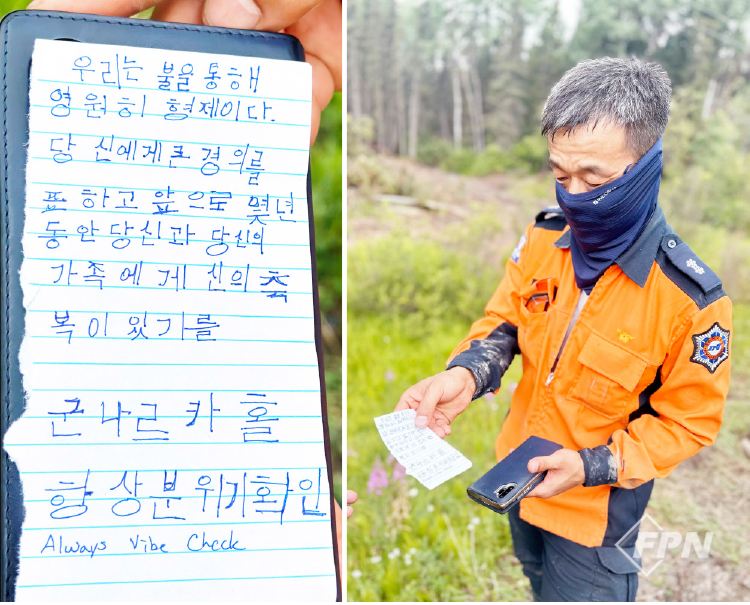 우리는 불을 통해
영원히 형제이다.
당신에게 큰 경의를
표하고 앞으로 몇년
동안 당신과 당신의
가족에게 신의 축
복이 있기를
군나르 카홀
항상 분위기 확인
Always Vibe Check
FPN